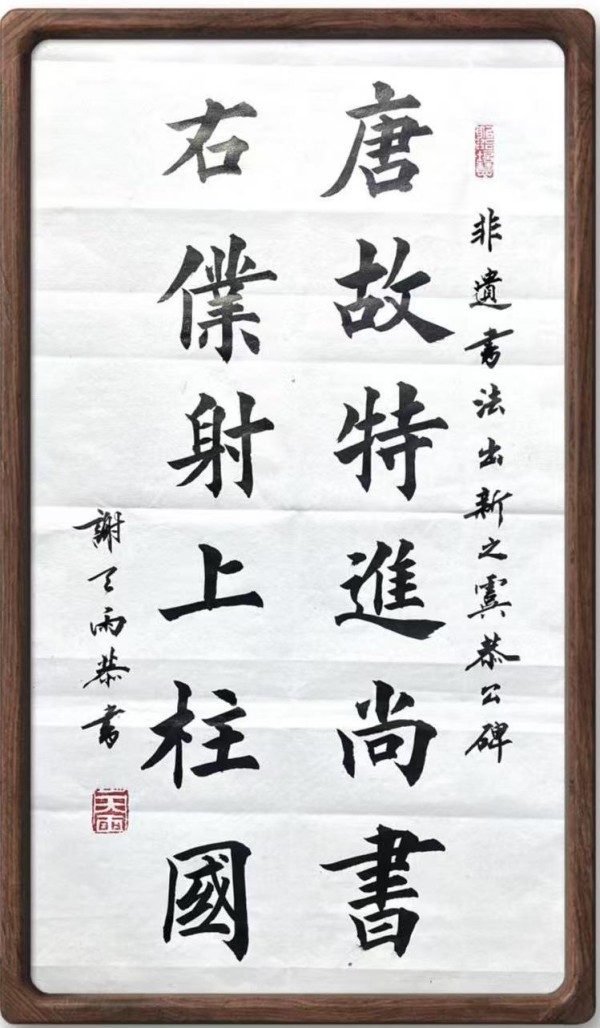 非遺書法出新之虞恭公碑
唐故特進尚書
右僕射上柱國
謝天雨恭書
天雨